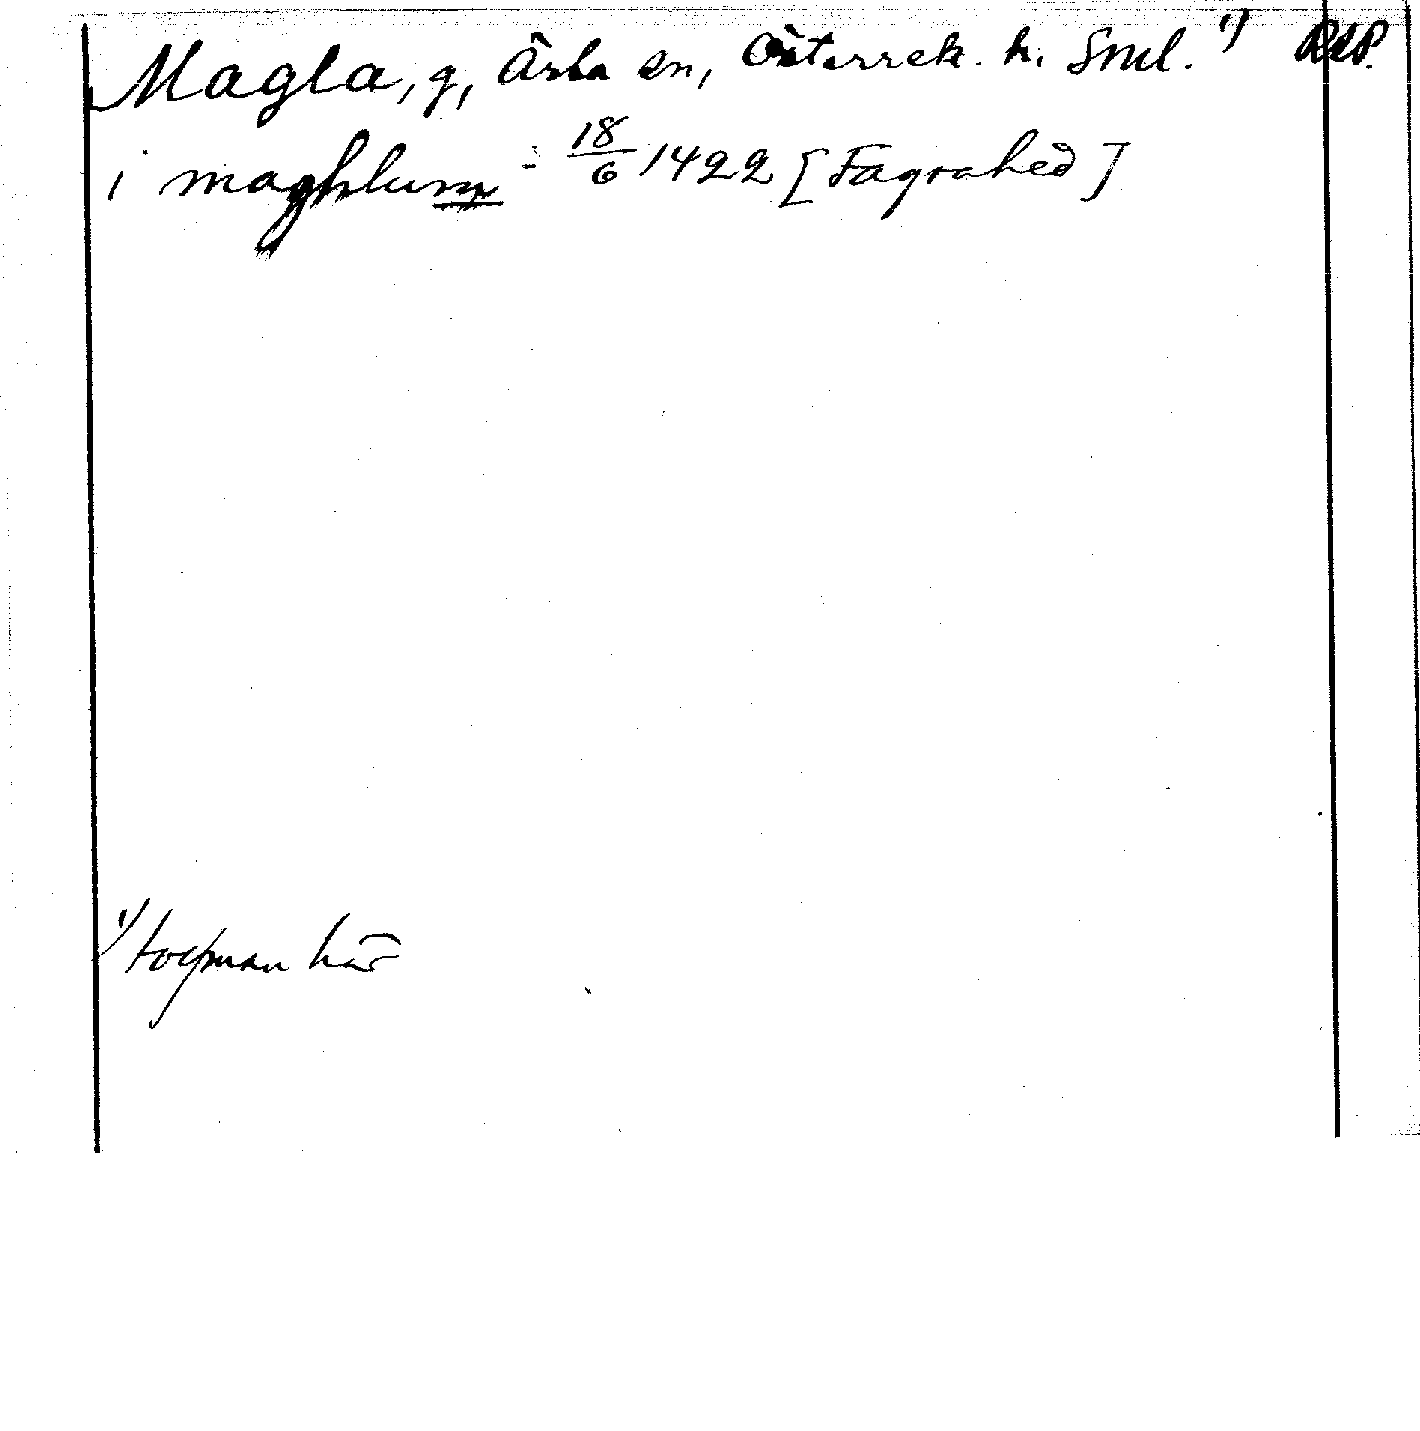 Magla, g, Ärla sn, Österrek. h. Sml. 1) RAP.
i maghlum - 18/6 1422 [Fagrahed]
1) torpman här